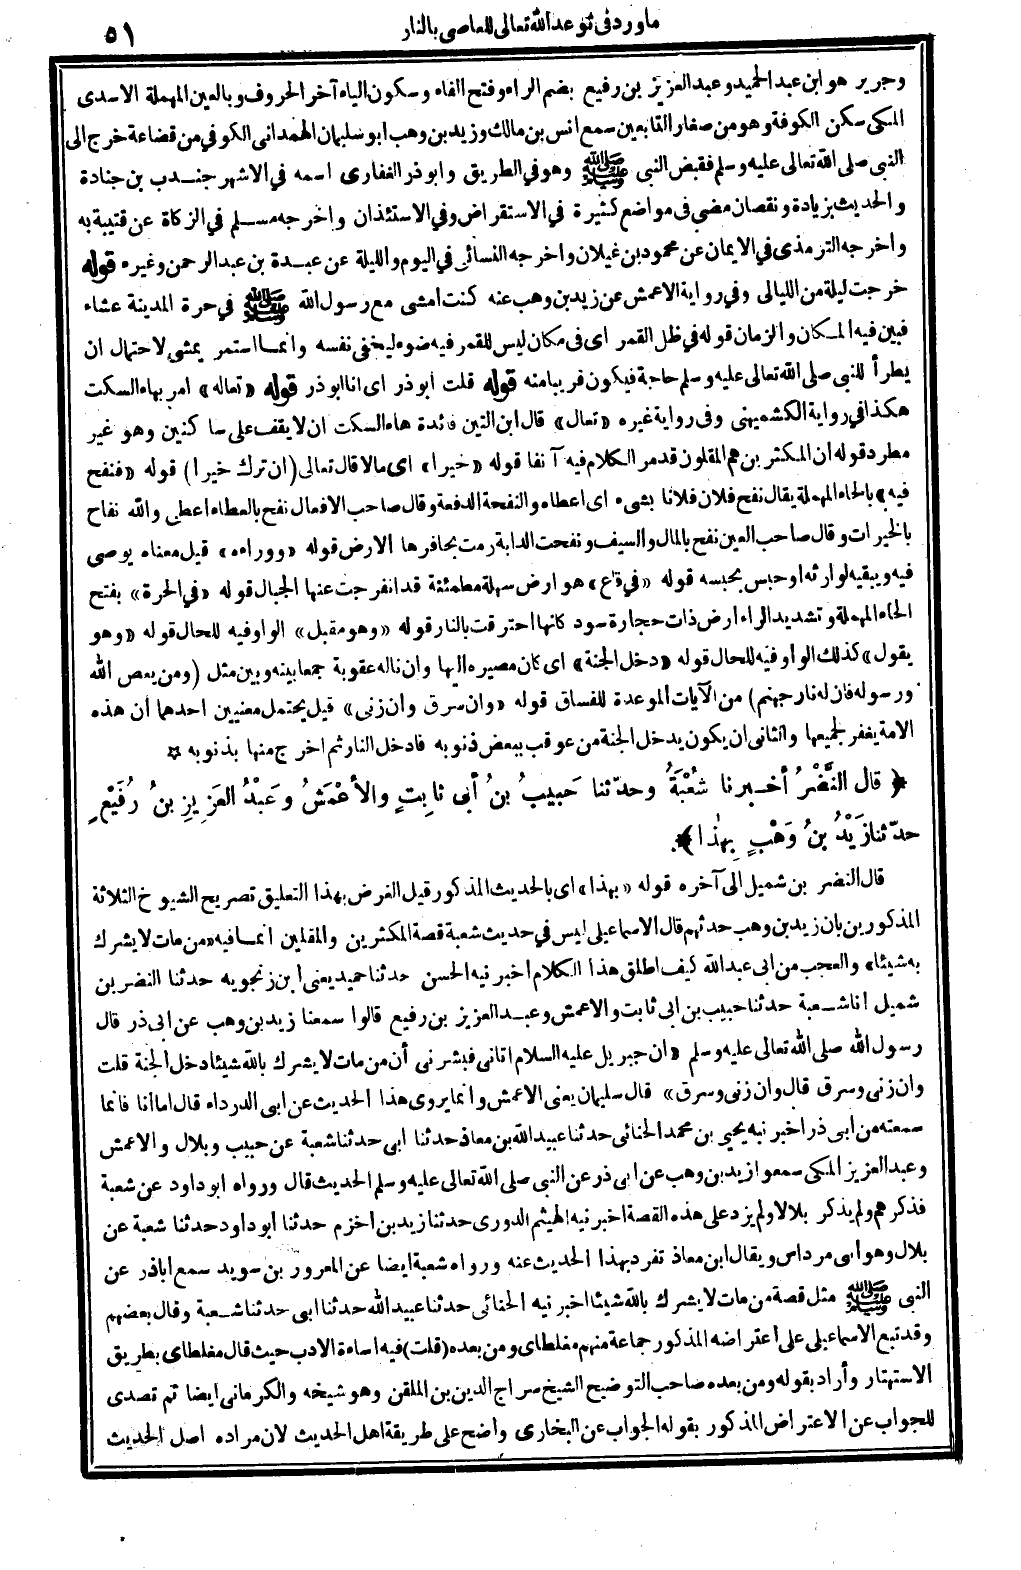 ماورد في توعد الله تعالى للعاصى بالنار ٥١
وجرير هو ابن عبد الحميد وعبد العزيز بن رفيع بضم الراء وفتح الفاء وسكون الياء آخر الحروف وبالعين المهملة الاسدى
المكى سكن الكوفة وهو من صغار التابعين سمع انس بن مالك وزيد بن وهب ابو سليمان الهمدانى الكوفي من قضاعة خرج الى
النبى صلى الله تعالى عليه وسلم فقبض النبى ﷺ وهو في الطريق وابو ذر الغفارى اسمه في الاشهر جندب بن جنادة
والحديث بزيادة ونقصان مضى في مواضع كثيرة في الاستقراض وفي الاستئذان واخرجه مسلم في الزكاة عن قتيبة به
واخرجه الترمذى في الايمان عن محمود بن غيلان واخرجه النسائى في اليوم والليلة عن عبدة بن عبد الرحمن وغيره قوله
خرجت ليلة من الليالى وفي رواية الاعمش عن زيد بن وهب عنه كنت امشى مع رسول الله ﷺ في حرة المدينة عشاء
فبين فيه المكان والزمان قوله في ظل القمر اى فى مكان ليس للقمر فيه ضوء ليخفى نفسه وانما استمر يمشى لاحتمال ان
يطرأ للنبى صلى الله تعالى عليه وسلم حاجة فيكون قريبا منه قوله قلت ابوذر اى انا ابوذر قوله «تعاله» امر بهاء السكت
هكذا في رواية الكشميهنى وفى رواية غيره «تعال» قال ابن التين فائدة هاء السكت ان لا يقف على ساكنين وهو غير
مطرد قوله ان المكثرين هم المقلون قد مر الكلام فيه آنفا قوله «خيرا» اى مالا قال تعالى (ان ترك خيرا) قوله «فنفح
فيه» بالحاء المهملة يقال نفح فلان فلانا بشىء اى اعطاه والنفحة الدفعة وقال صاحب الافعال نفح بالعطاء اعطى والله نفاح
بالخيرات وقال صاحب العين نفح بالمال والسيف ونفحت الدابة رمت بحافرها الارض قوله «ووراءه» قيل معناه يوصى
فيه ويبقيه لوارثه او حبس بحبسه قوله «في قاع» هو ارض سهلة مطمئنة قد انفرجت عنها الجبال قوله «في الحرة» بفتح
الحاء المهملة وتشديد الراء ارض ذات حجارة سود كانها احترقت بالنار قوله «وهو مقبل» الواو فيه للحال قوله «وهو
يقول» كذلك الواو فيه للحال قوله «دخل الجنة» اى كان مصيره اليها وان ناله عقوبة جمعا بينه وبين مثل (ومن يعص الله
ورسوله فان له نار جهنم) من الآيات الموعدة للفساق قوله «وان سرق وان زنى» قيل يحتمل معنيين احدهما أن هذه
الامة يغفر لجميعها والثانى ان يكون يدخل الجنة من عوقب ببعض ذنوبه فادخل النار ثم اخرج منها بذنوبه ☆
﴿ قال النَّضْرُ أخـبرنا شُعْبَةُ وحدّثنا حَبيبُ بنُ أبى ثابِتٍ والأعْمَشُ وعَبْدُ العَزِيزِ بنُ رُفَيْعٍ
حدّثنا زَيْدُ بنُ وَهْبٍ بِهٰذا ﴾.
قال النضر بن شميل الى آخره قوله «بهذا» اى بالحديث المذكور قيل الغرض بهذا التعليق تصريح الشيوخ الثلاثة
المذكورين بان زيد بن وهب حدثهم قال الاسماعيلى ليس في حديث شعبة قصة المكثرين والمقلين انما فيه «من مات لا يشرك
به شيئا» والعجب من ابى عبدالله كيف اطلق هذا الكلام اخبرنيه الحسن حدثنا حميد يعنى ابن زنجويه حدثنا النضر بن
شميل انا شعبة حدثنا حبيب بن ابى ثابت والاعمش وعبد العزيز بن رفيع قالوا سمعنا زيد بن وهب عن ابى ذر قال
رسول الله صلى الله تعالى عليه وسلم «ان جبريل عليه السلام اتانى فبشرنى أن من مات لا يشرك بالله شيئا دخل الجنة قلت
وان زنى وسرق قال وان زنى وسرق» قال سليمان يعنى الاعمش وانما يروى هذا الحديث عن ابى الدرداء قال اما انا فانما
سمعته من ابى ذر اخبرنيه يحيى بن محمد الحنائى حدثنا عبيد الله بن معاذ حدثنا ابى حدثنا شعبة عن حبيب وبلال والاعمش
وعبد العزيز المكى سمعوا زيد بن وهب عن ابى ذر عن النبى صلى الله تعالى عليه وسلم الحديث قال ورواه ابو داود عن شعبة
فذكرهم ولم يذكر بلالا ولم يزد على هذه القصة اخبرنيه الهيثم الدورى حدثنا زيد بن اخزم حدثنا ابو داود حدثنا شعبة عن
بلال وهو ابى مرداس ويقال ابن معاذ تفرد بهذا الحديث عنه ورواه شعبة ايضا عن المعرور بن سويد سمع اباذر عن
النبى ﷺ مثل قصة من مات لا يشرك بالله شيئا اخبرنيه الحنائى حدثنا عبيد الله حدثنا ابى حدثنا شعبة وقال بعضهم
وقد تبع الاسماعيلى على اعتراضه المذكور جماعة منهم مغلطاى ومن بعده (قلت) فيه اساءة الادب حيث قال مغلطاى بطريق
الاستهتار وأراد بقوله ومن بعده صاحب التوضيح الشيخ سراج الدين بن الملقن وهو شيخه والكرمانى ايضا ثم تصدى
للجواب عن الاعتراض المذكور بقوله الجواب عن البخارى واضح على طريقة اهل الحديث لان مراده اصل الحديث